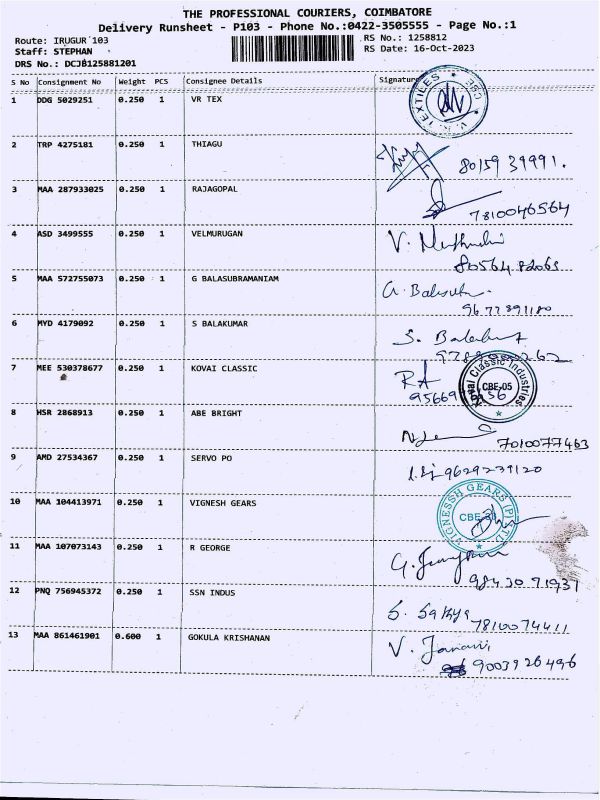 THE PROFESSIONAL COURIERS, COIMBATORE
Delivery Runsheet - P103 - Phone No.:0422-3505555 - Page No.:1
Route: IRUGUR 103 RS No.: 1258812
Staff: STEPHAN RS Date: 16-Oct-2023
DRS No.: DCJB125881201
S No Consignment No Weight PCS Consignee Details Signature
1 DDG 5029251 0.250 1 VR TEX
TEXTILES CBE
2 TRP 4275181 0.250 1 THIAGU
80159 39991.
3 MAA 287933025 0.250 1 RAJAGOPAL
7810046564
4 ASD 3499555 0.250 1 VELMURUGAN V.
80564 82065
5 MAA 572755073 0.250 1 G BALASUBRAMANIAM
9677891180
6 MYD 4179092 0.250 1 S BALAKUMAR S.
7 MEE 530378677 0.250 1 KOVAI CLASSIC RA
Kovai Classic Industries CBE-05
8 HSR 2868913 0.250 1 ABE BRIGHT
7010077463
9 AMD 27534367 0.250 1 SERVO PO 9629239120
10 MAA 104413971 0.250 1 VIGNESH GEARS
VIGNESSH GEARS (P) LTD
11 MAA 107073143 0.250 1 R GEORGE
98430 71937
12 PNQ 756945372 0.250 1 SSN INDUS S. Sakya
7810074411
13 MAA 861461901 0.600 1 GOKULA KRISHANAN V. Janani
9003926496